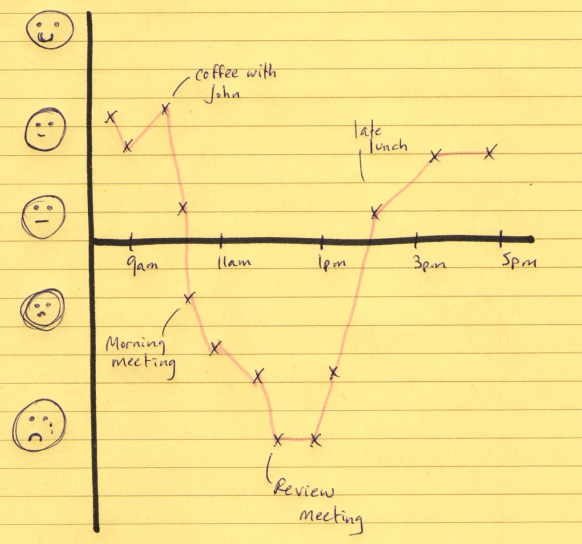 coffee with
John
late
lunch
9am
11am
1pm
3pm
5pm
Morning
meeting
Review
meeting